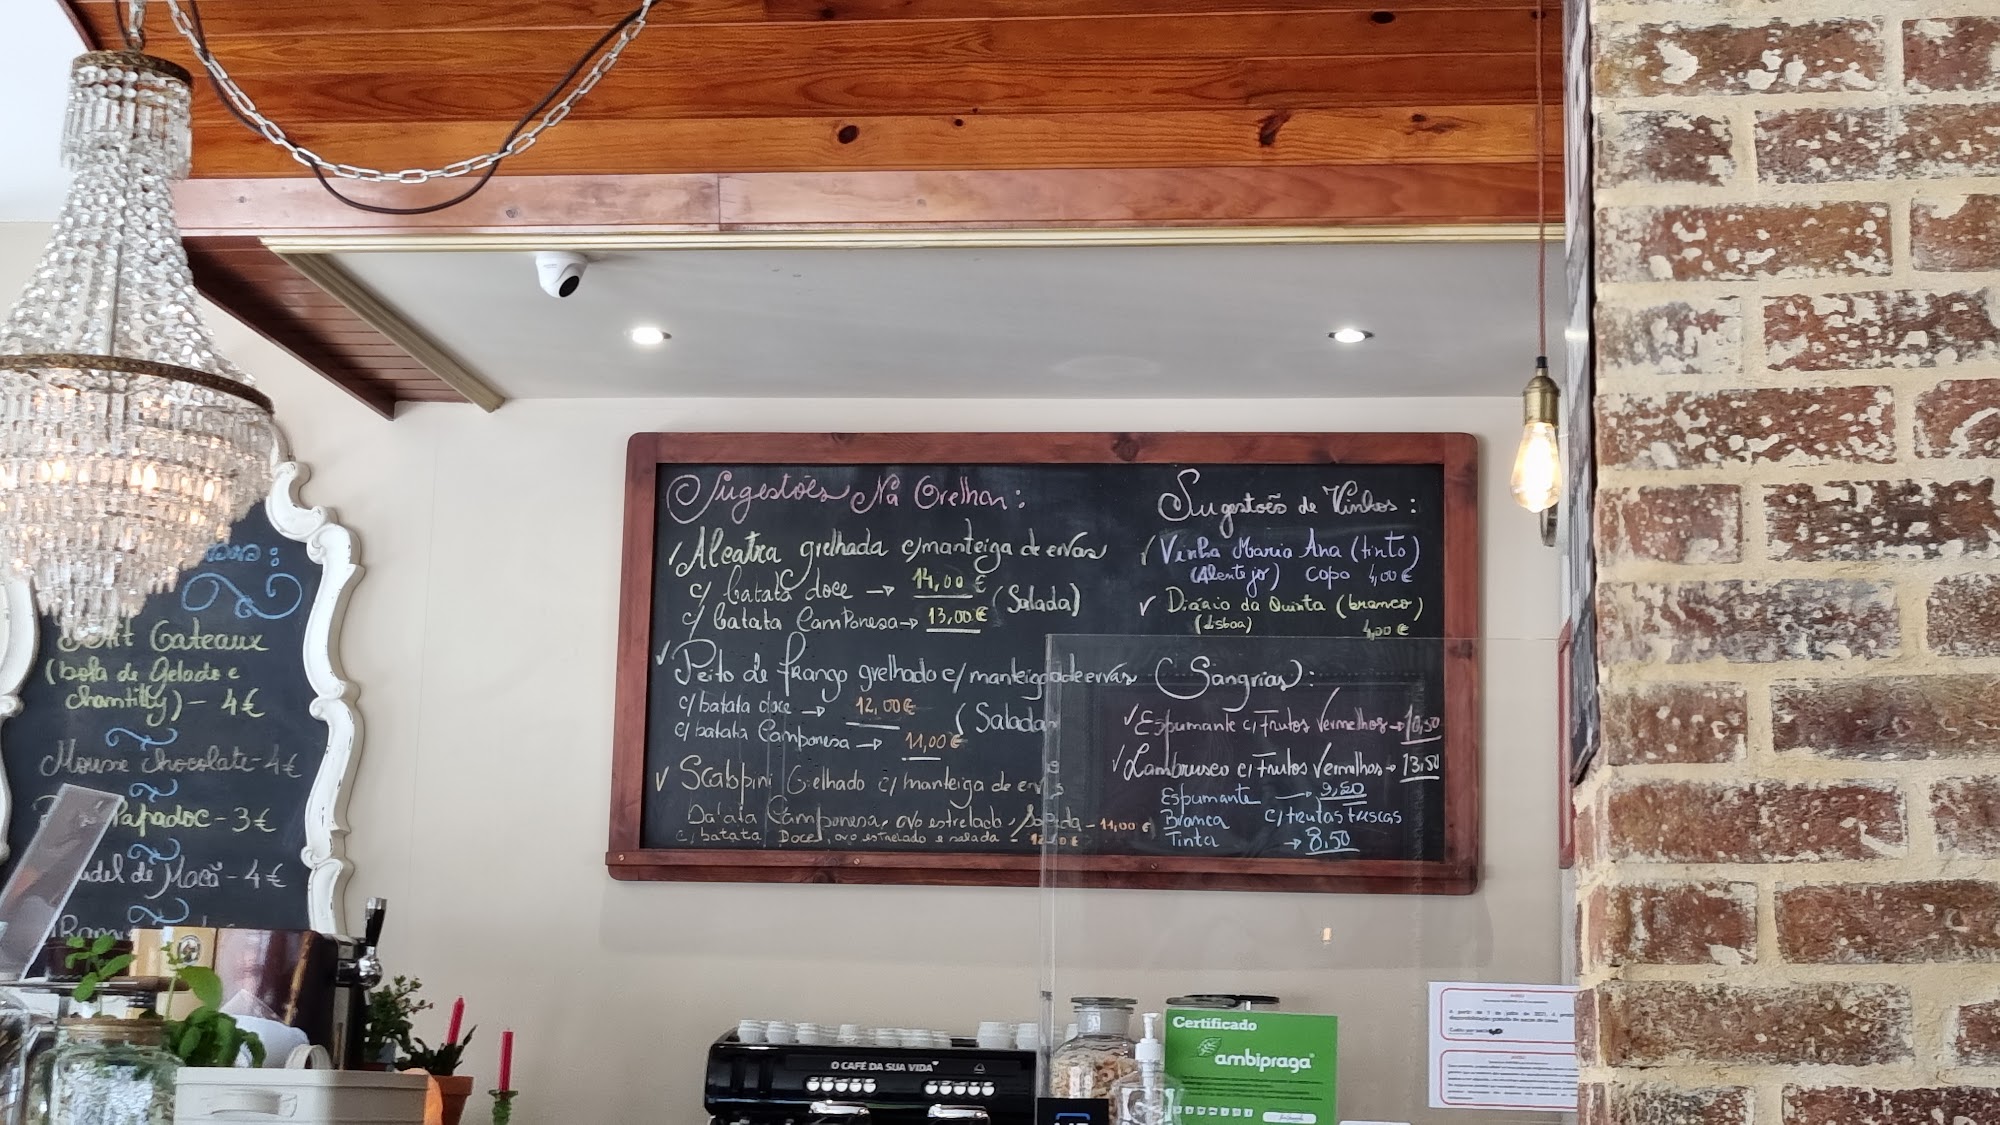 Sugestões Na Grelha:
✓ Alcatra grelhada c/manteiga de ervas
c/ batata doce → 14,00 € (Salada)
c/ batata Camponesa → 13,00 €
✓ Peito de frango grelhado c/ manteiga de ervas
c/ batata doce → 12,00 € (Salada
c/ batata Camponesa → 11,00 €
✓ Scalopini Grelhado c/ manteiga de ervas
Batata Camponesa, ovo estrelado, Salada - 11,00 €
c/ batata Doce, ovo estrelado e salada - 12,00 €
Sugestões de Vinhos:
✓ Vinha Maria Ana (tinto)
(Alentejo) copo 4,00 €
✓ Diário da Quinta (branco)
(Lisboa)
4,00 €
(Sangrias):
✓ Espumante c/ Frutos Vermelhos → 10,50
✓ Lambrusco c/ Frutos Vermelhos → 13,50
Espumante → 9,50
Branca c/ frutas frescas
Tinta → 8,50
Petit Gateaux
(bola de Gelado e
chantilly) - 4€
Mousse chocolate - 4€
Papadoc - 3€
de Maçã - 4€
O CAFÉ DA SUA VIDA
Certificado
ambipraga